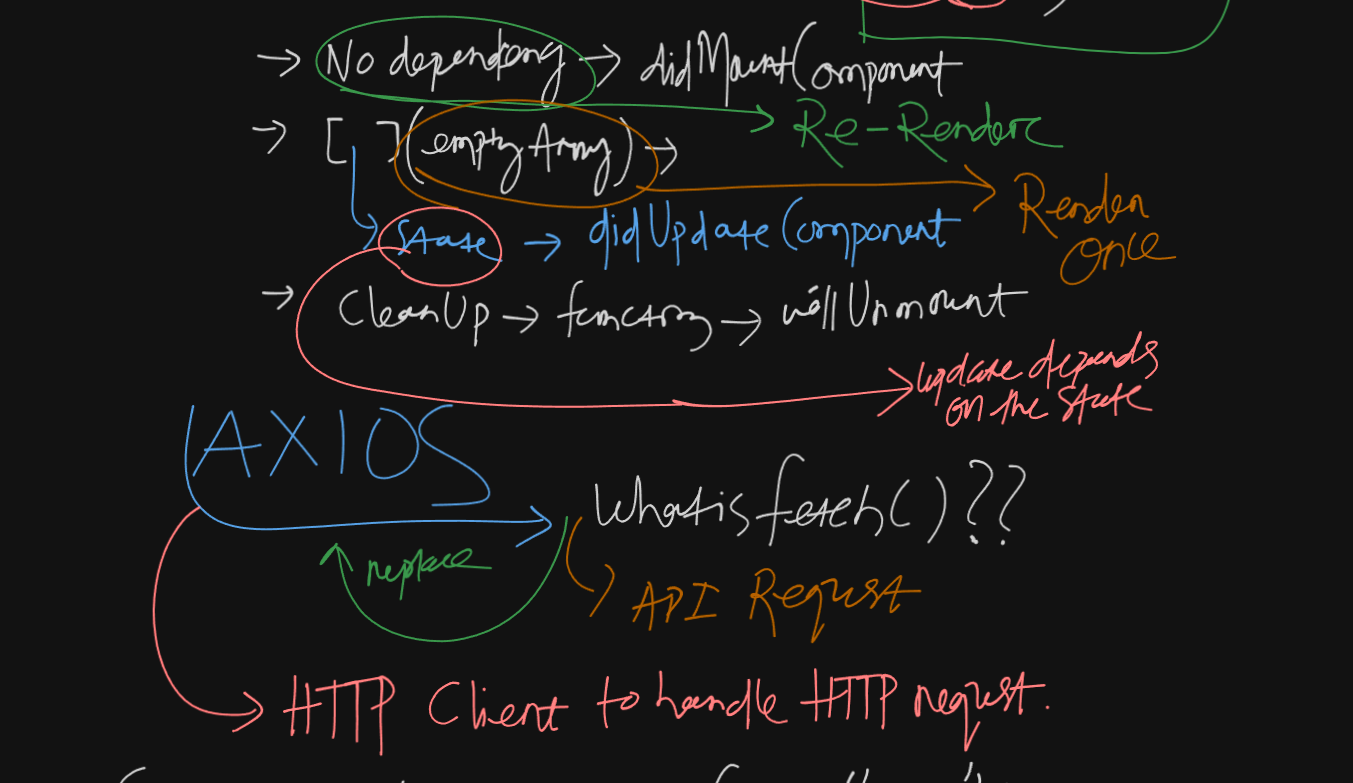 → No dependency → didMount Component
→ Re-Render
→ [ ] (empty Array) →
→ Render
Once
State → didUpdate Component
→ CleanUp → function → willUnmount
→ update depends
on the state
AXIOS
What is fetch()??
replace
API Request
→ HTTP Client to handle HTTP request.